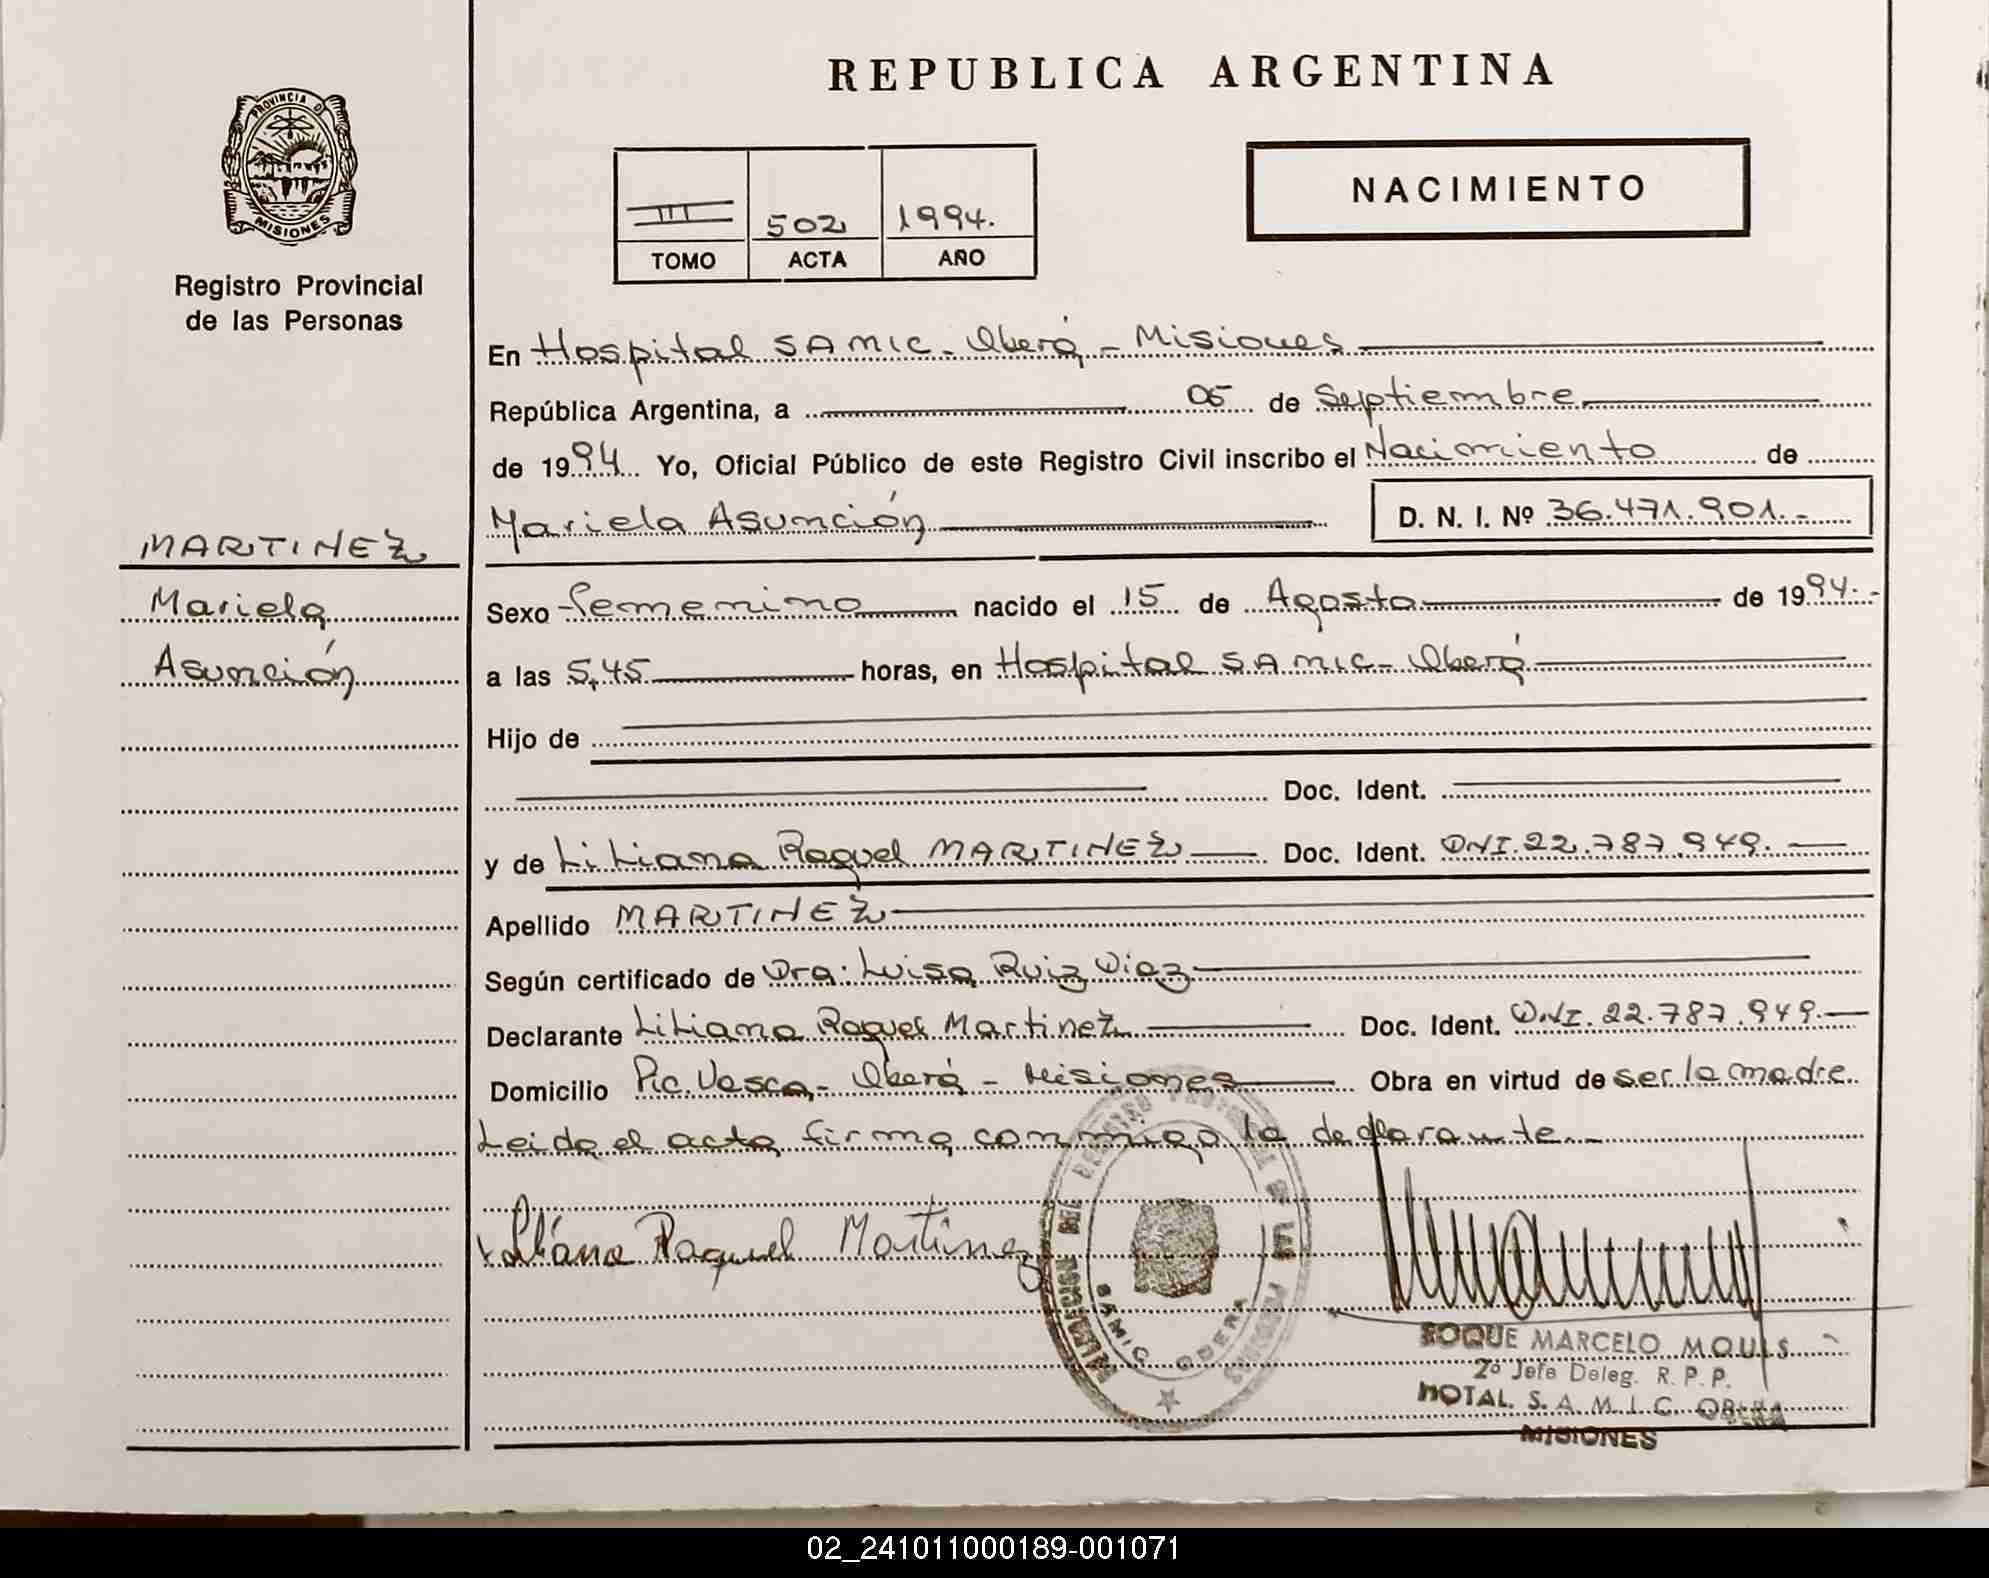 REPUBLICA ARGENTINA
PROVINCIA D
MISIONES
Registro Provincial
de las Personas
III 502 1994.
TOMO ACTA AÑO
NACIMIENTO
En Hospital SAMIC - Oberá - Misiones
República Argentina, a 05 de Septiembre
de 1994 Yo, Oficial Público de este Registro Civil inscribo el Nacimiento de
Mariela Asunción D. N. I. Nº 36.471.901.-
MARTINEZ
Mariela
Asunción
Sexo femenino nacido el 15 de Agosto de 1994.-
a las 5,45 horas, en Hospital SAMIC - Oberá
Hijo de
Doc. Ident.
y de Liliana Raquel MARTINEZ Doc. Ident. DNI. 22.787.949.
Apellido MARTINEZ
Según certificado de Dra: Luisa Ruiz Diaz
Declarante Liliana Raquel Martinez Doc. Ident. DNI. 22.787.949.
Domicilio Pic. Vasca - Oberá - Misiones Obra en virtud de ser la madre
Leida el acta firma conmigo la declarante.-
Liliana Raquel Martinez
SAMIC OBERA
MISIONES
ROQUE MARCELO MQUIS
2º Jefe Deleg. R. P. P.
HOTAL. S. A. M. I. C. OBERA
MISIONES
02_241011000189-001071